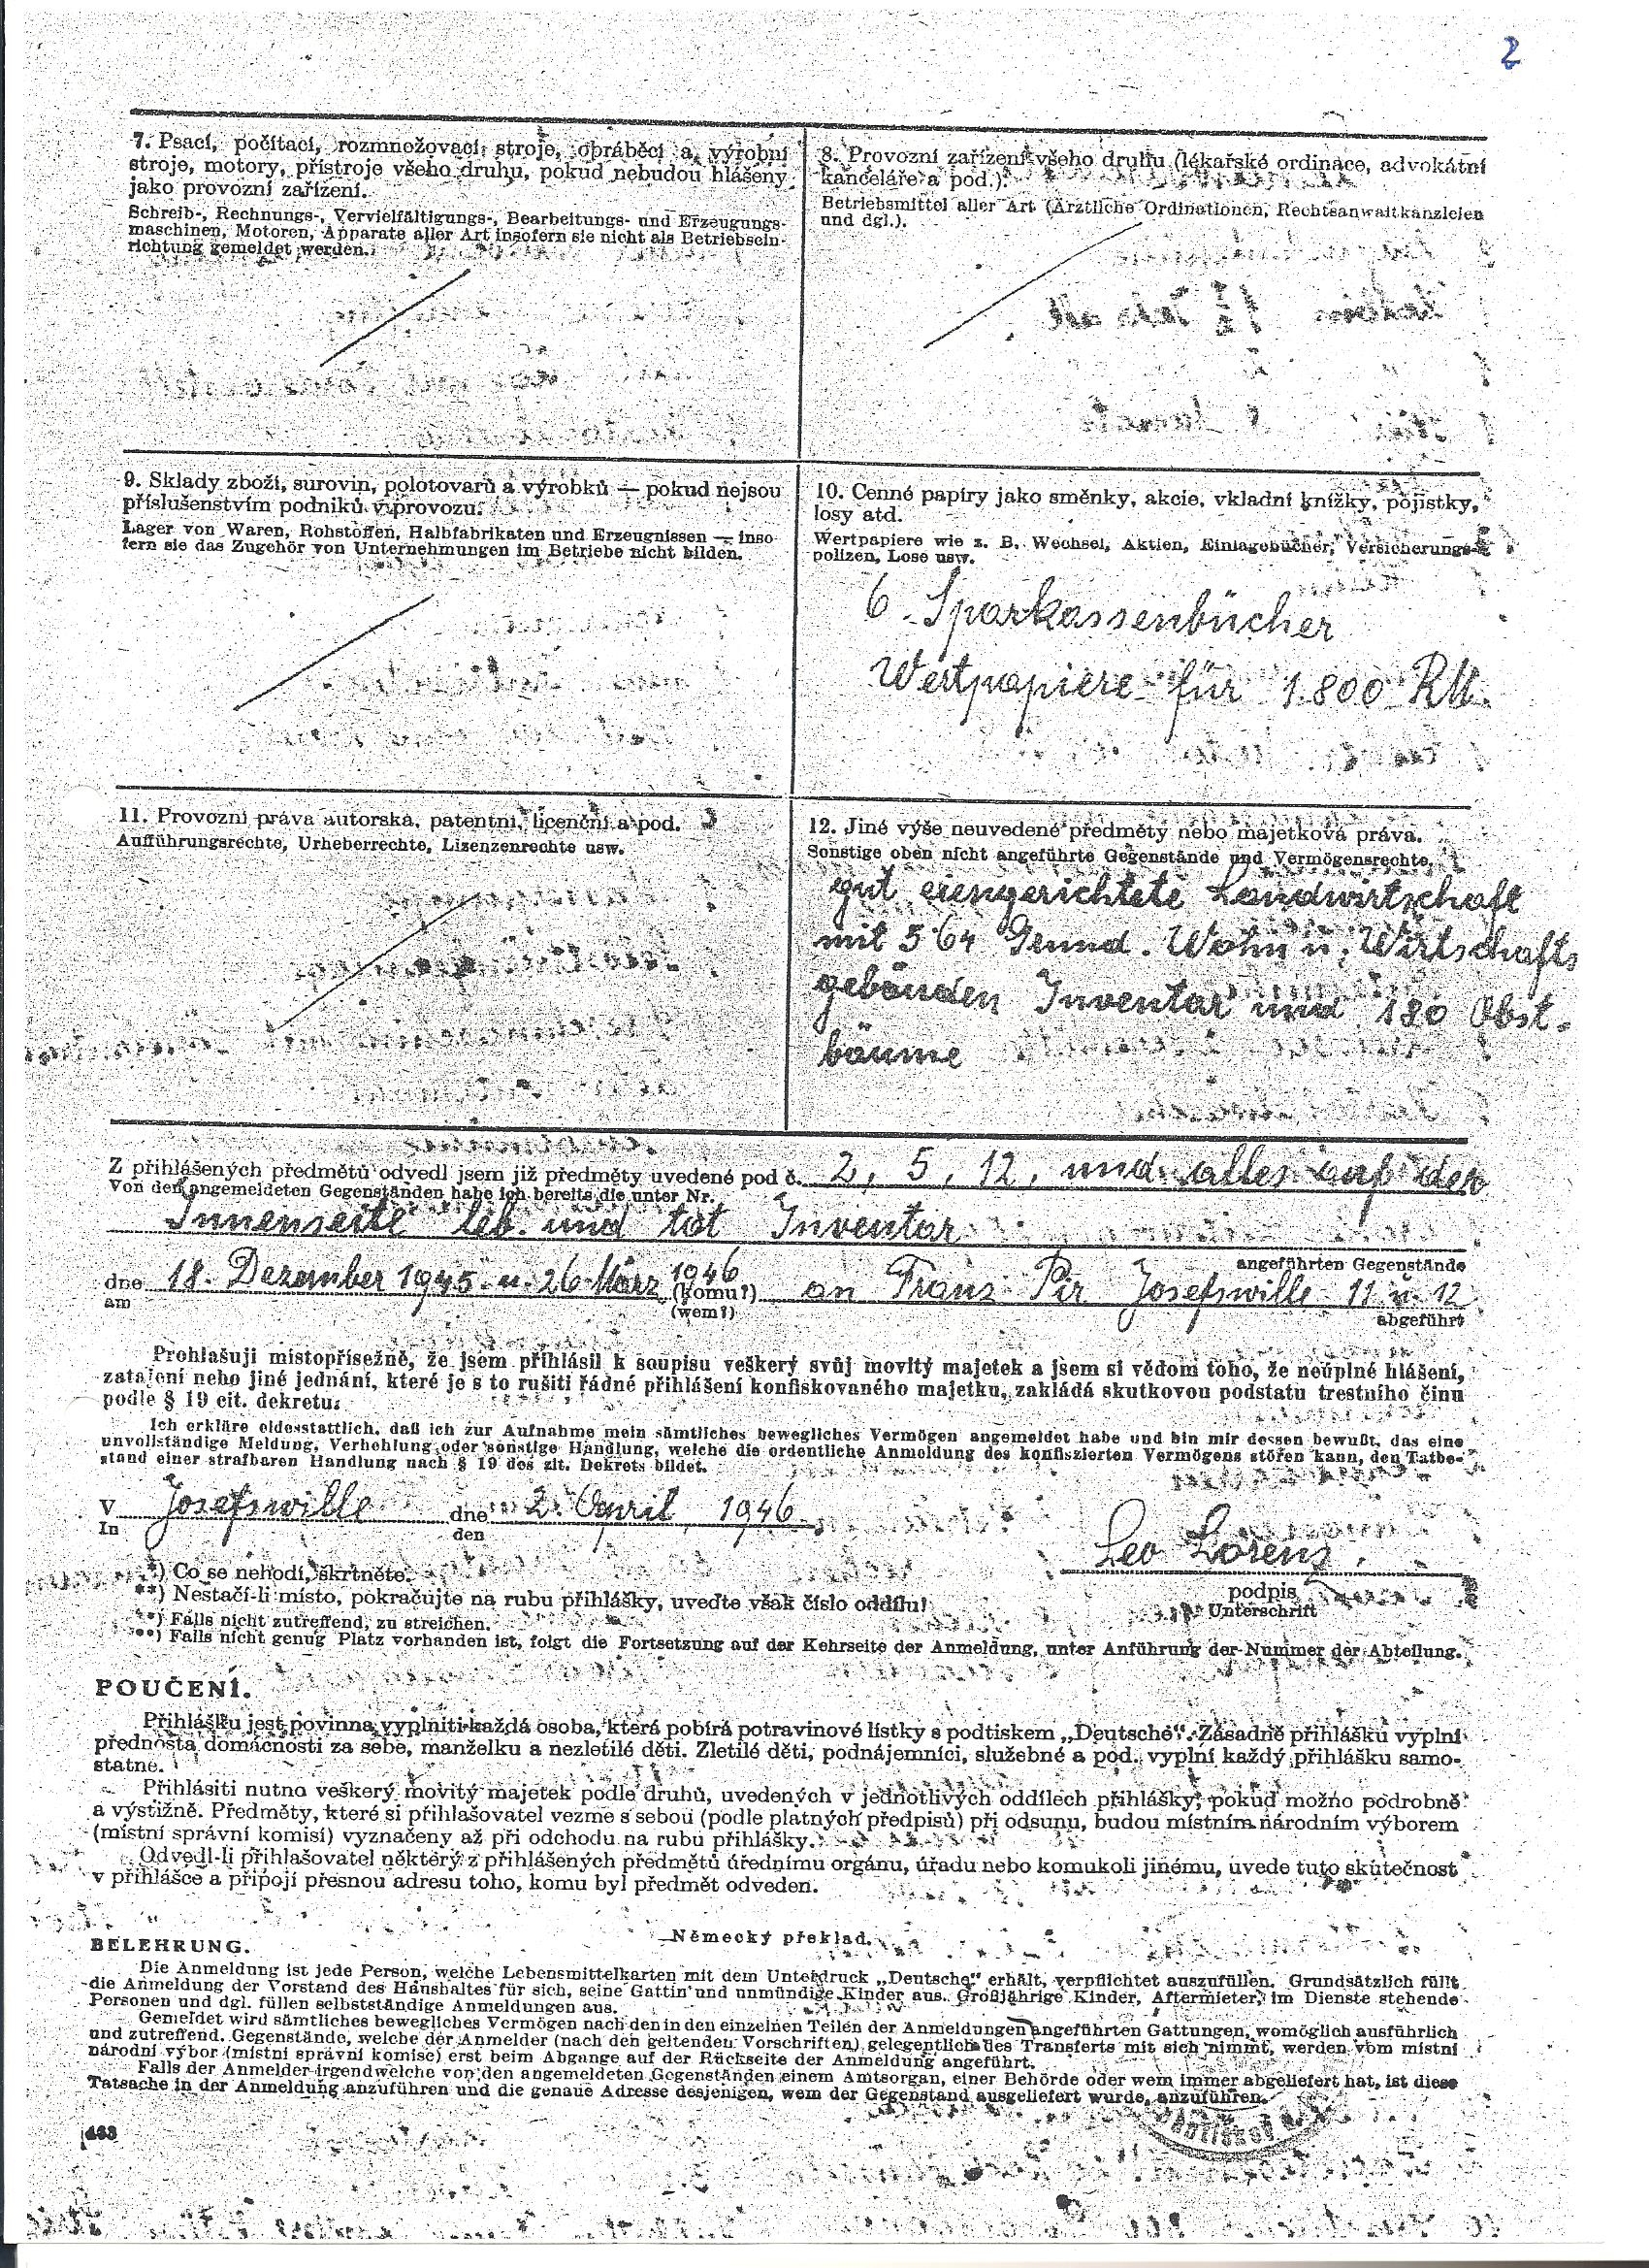 2
7. Psací, počítací, rozmnožovací stroje, obráběcí a výrobní
stroje, motory, přístroje všeho druhu, pokud nebudou hlášeny
jako provozní zařízení.
Schreib-, Rechnungs-, Vervielfältigungs-, Bearbeitungs- und Erzeugungs-
maschinen, Motoren, Apparate aller Art insofern sie nicht als Betriebsein-
richtung gemeldet werden.
8. Provozní zařízení všeho druhu (lékařské ordinace, advokátní
kanceláře a pod.).
Betriebsmittel aller Art (Ärztliche Ordinationen, Rechtsanwaltkanzleien
und dgl.).
9. Sklady zboží, surovin, polotovarů a výrobků — pokud nejsou
příslušenstvím podniků v provozu.
Lager von Waren, Rohstoffen, Halbfabrikaten und Erzeugnissen — inso
fern sie das Zugehör von Unternehmungen im Betriebe nicht bilden.
10. Cenné papíry jako směnky, akcie, vkladní knížky, pojistky,
losy atd.
Wertpapiere wie z. B. Wechsel, Aktien, Einlagebücher, Versicherungs-
polizen, Lose usw.
6 Sparkassenbücher
Wertpapiere für 1.800 RM.
11. Provozní práva autorská, patentní, licenční a pod.
Aufführungsrechte, Urheberrechte, Lizenzenrechte usw.
12. Jiné výše neuvedené předměty nebo majetková práva.
Sonstige oben nicht angeführte Gegenstände und Vermögensrechte.
gut eiengerichtete Landwirtschaft
mit 5˙64 Wohn u. Wirtschafts
gebäuden Inventar und 180 Obst-
bäume
Z přihlášených předmětů odvedl jsem již předměty uvedené pod č. 2, 5, 12, und alles auf der
Von den angemeldeten Gegenständen habe ich bereits die unter Nr.
Innenseite leb. und tot Inventar
angeführten Gegenstände
dne 18. Dezember 1945 u. 26 März 1946 (komu?) an Franz Pir Josefswille 11 u. 12
am (wem?) abgeführt
Prohlašuji místopřísežně, že jsem přihlásil k soupisu veškerý svůj movitý majetek a jsem si vědom toho, že neúplné hlášení,
zatajení nebo jiné jednání, které je s to rušiti řádné přihlášení konfiskovaného majetku, zakládá skutkovou podstatu trestního činu
podle § 19 cit. dekretu.
Ich erkläre eidesstattlich, daß ich zur Aufnahme mein sämtliches bewegliches Vermögen angemeldet habe und bin mir dessen bewußt, das eine
unvollständige Meldung, Verhehlung oder sonstige Handlung, welche die ordentliche Anmeldung des konfiszierten Vermögens stören kann, den Tatbe-
stand einer strafbaren Handlung nach § 19 des zit. Dekrets bildet.
V Josefswille dne 2. April 1946
In den
Leo Lorenz
podpis
Unterschrift
*) Co se nehodí, škrtněte.
**) Nestačí-li místo, pokračujte na rubu přihlášky, uveďte však číslo oddílu!
*) Falls nicht zutreffend, zu streichen.
**) Falls nicht genug Platz vorhanden ist, folgt die Fortsetzung auf der Kehrseite der Anmeldung, unter Anführung der Nummer der Abteilung.
POUČENÍ.
Přihlášku jest povinna vyplniti každá osoba, která pobírá potravinové lístky s podtiskem „Deutsche“. Zásadně přihlášku vyplní
přednosta domácnosti za sebe, manželku a nezletilé děti. Zletilé děti, podnájemníci, služebné a pod. vyplní každý přihlášku samo-
statně.
Přihlásiti nutno veškerý movitý majetek podle druhů, uvedených v jednotlivých oddílech přihlášky, pokud možno podrobně
a výstižně. Předměty, které si přihlašovatel vezme s sebou (podle platných předpisů) při odsunu, budou místním národním výborem
(místní správní komisí) vyznačeny až při odchodu na rubu přihlášky.
Odvedl-li přihlašovatel některý z přihlášených předmětů úřednímu orgánu, úřadu nebo komukoli jinému, uvede tuto skutečnost
v přihlášce a připojí přesnou adresu toho, komu byl předmět odveden.
Německý překlad.
BELEHRUNG.
Die Anmeldung ist jede Person, welche Lebensmittelkarten mit dem Unterdruck „Deutsche“ erhält, verpflichtet auszufüllen. Grundsätzlich füllt
die Anmeldung der Vorstand des Haushaltes für sich, seine Gattin und unmündige Kinder aus. Großjährige Kinder, Aftermieter, im Dienste stehende
Personen und dgl. füllen selbstständige Anmeldungen aus.
Gemeldet wird sämtliches bewegliches Vermögen nach den in den einzelnen Teilen der Anmeldungen angeführten Gattungen, womöglich ausführlich
und zutreffend. Gegenstände, welche der Anmelder (nach den geltenden Vorschriften) gelegentlich des Transferts mit sich nimmt, werden vom místní
národní výbor (místní správní komise) erst beim Abgange auf der Rückseite der Anmeldung angeführt.
Falls der Anmelder irgendwelche von den angemeldeten Gegenständen einem Amtsorgan, einer Behörde oder wem immer abgeliefert hat, ist diese
Tatsache in der Anmeldung anzuführen und die genaue Adresse desjenigen, wem der Gegenstand ausgeliefert wurde, anzuführen.
463